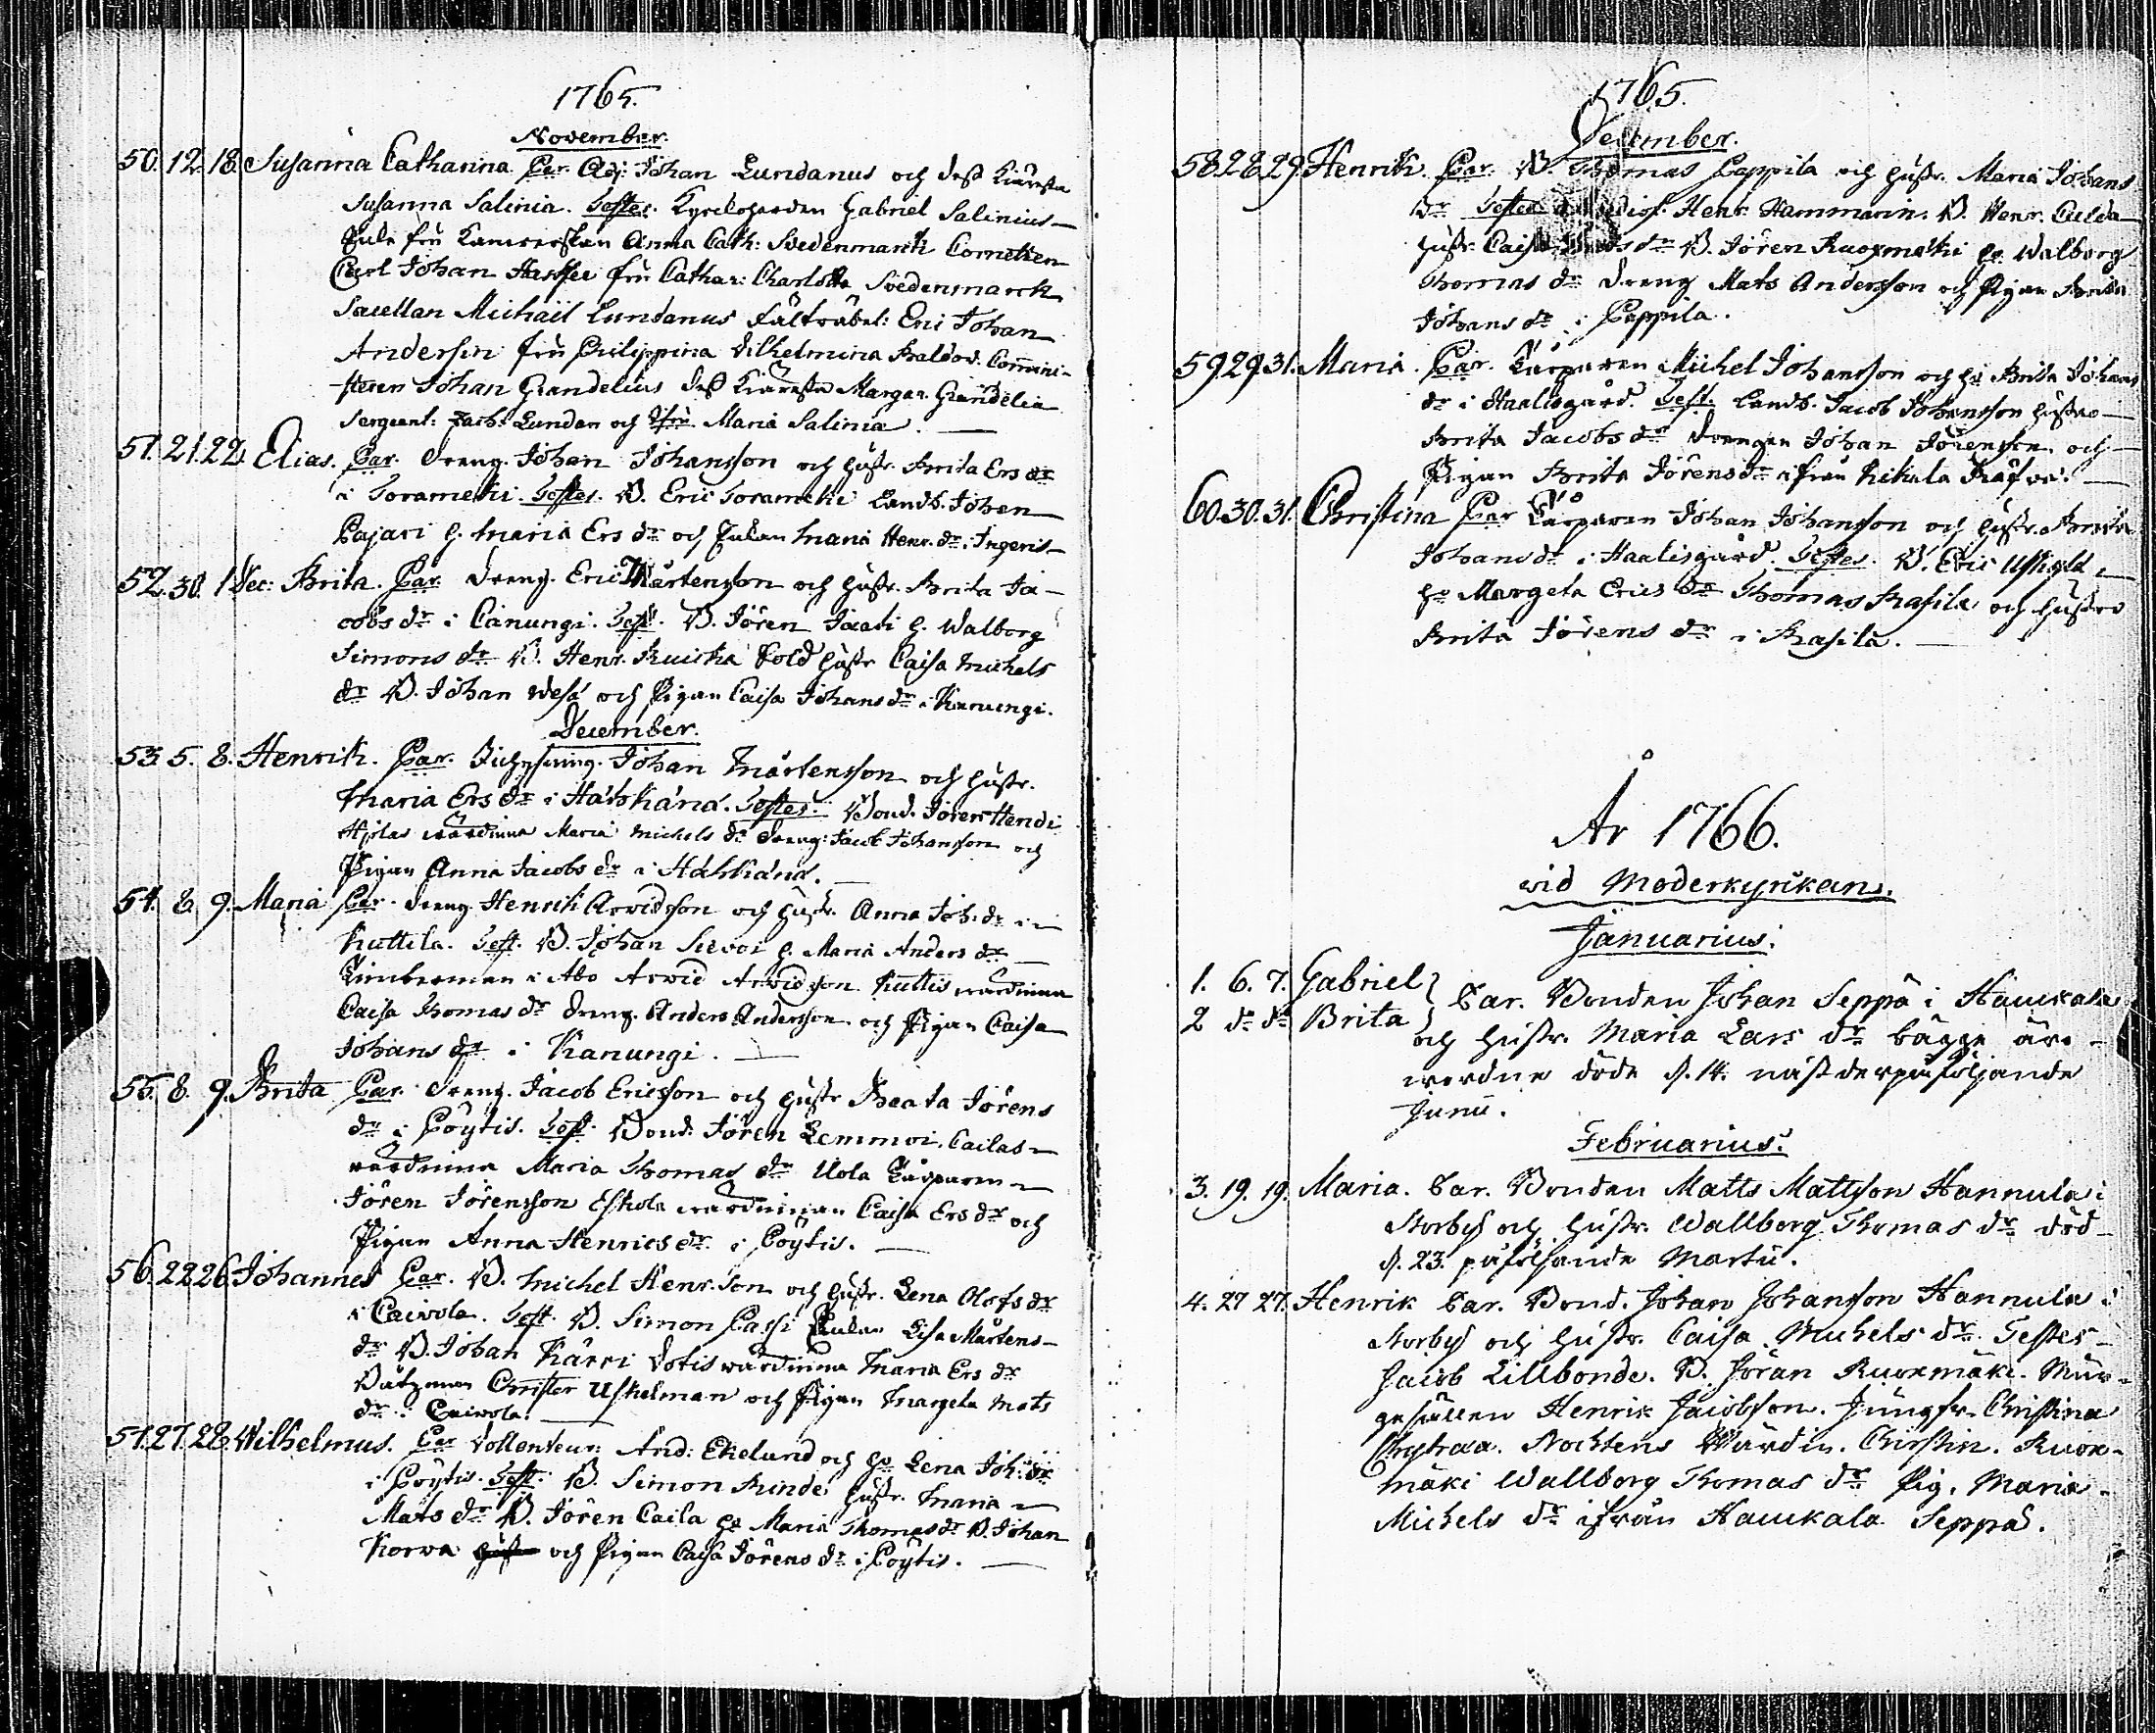 1765.
November.
50. 12. 18. Susanna Catharina. Par. Adj: Johan Lundanus och dess Kiäresta
Susanna Salinia. Testes. Kyrckoherden Gabriel Salinius
fru Anna Cath: Svedenmarck Cornetten
Carl Johan fru Cathar: Charlotta Svedenmarck
Sacellan Michaël Lundanus Fältväbel: Eric Johan
Andersin fru Philippina Vilhelmina Commini-
steren Johan Grandelius dess Kiäresta Margar. Grandelia
Sergeant: Zach: Lundan och Maria Salinia.
51. 21. 22. Elias. Par. Dreng. Johan Johansson och hustr. Brita Ers dr
i Sorameki. Testes. B. Eric Soramcki Landb. Johan
Pajari h. Maria Ers dr och Maria Henr. dr i Ingeris
52. 30. 1 Dec: Brita. Par. Dreng. Eric Mårtensson och hustr. Brita Ja-
cobs dr i Canungi. Test. B. Jören Jaati h. Walborg
Simons dr B. Henr. Ruicka Sold hustr Caisa Michels
dr B. Johan Wesa och Pigan Caisa Johans dr i Kanungi.
December.
53. 5. 8. Henrik. Par. Johan Mårtensson och hustr.
Maria Ers dr i Hatskana. Testes. Bond. Jören Hendi
wärdinna Maria Michels dr Dreng: Jacob Johansson och
Pigan Anna Jacobs dr i Hahkana.
54. 8. 9. Maria Par. Dreng. Henrik Arvidsson och hustr. Anna Joh: dr i
Kuttila. Test. B. Johan Sievoi h. Maria Anders dr
Timberman i Abo Arvid Arvidsson Kuttis wärdinna
Caisa Thomas dr Dreng. Anders Andersson och Pigan Caisa
Johans dr i Kanungi.
55. 8. 9. Brita Par. Dreng. Jacob Ericsson och hustr Beata Jörens
dr i Pöytis. Test. Bond. Jören Lemmoi. Cailas
wärdinna Maria Thomas dr Uola Torparen
Jören Jörensson Eskola wärdinnan Caisa Ers dr och
Pigan Anna Henrics dr i Pöytis.
56. 22 26. Johannes Par. B. Michel Henr. Son och hustr. Lena Olofs dr
i Caivola. Test. B. Simon Passi Lisa Mårtens
dr B. Johan Kärri Dotis wärdinna Maria Ers dr
Båtzman Christer Uskelman och Pigan Margeta Mats
dr i Caivola.
57. 27. 28. Wilhelmus. Par Vollenteur: And: Ekelund och ho Lena Joh: dr
i Pöytis. Test. B. Simon Rinde hustr. Maria
Mats dr B. Jören Caila ho Maria Thomas dr B. Johan
Korva och Pigan Caisa Jörens dr i Pöytis.
1765.
December.
58. 28. 29. Henrik. Par. B. Thomas Pappila och hustr. Maria Johans
dr Testes Henr. Hammarin. B. Henr. Culda
hustr. Caisa dr B. Jören Ruoxmeki ho Walborg
Thomas dr Dreng Mats Andersson och Pigan Brita
Johans dr i Pappila.
59. 29. 31. Maria. Par. Torparen Michel Johansson och ho Brita Johans
dr i Haalisgård. Test. Landb. Jacob Johansson hustro
Brita Jacobs dr Drengen Johan Jörensson och
Pigan Brita Jörens dr ifrån
60. 30. 31. Christina Par Torparen Johan Johansson och hustr. Brita
Johans dr i Haalisgård. Testes. B. Eric
ho Margeta Erics dr Thomas Rasila och hustro
Brita Jörens dr i Rasila.
År 1766.
vid Moderkyrkan.
Januarius.
1. 6. 7. Gabriel } Par. Bonden Johan Seppä i Haukala
2 do do Brita } och hustr. Maria Lars dr bägge äro
wordne döde d. 14. näst derpåföljande
Junii.
Februarius.
3. 19. 19. Maria. Par. Bonden Matts Mattson Hannula i
Storby och hustr. Wallborg Thomas dr död
d. 23. påföljande Martii.
4. 27 27. Henrik Par. Bond. Johan Johansson Hannula i
Storby och hustr. Caisa Michels dr. Testes
Jacob Lillbonde. B. Jöran Ruoxmäki. Mur-
gesällen Henrik Jacobson. Jungfr. Christina
Chytraea. Nochtens Wärdin. Christin. Ruox-
mäki Wallborg Thomas dr Pig. Maria
Michels dr ifrån Haukala Seppä.